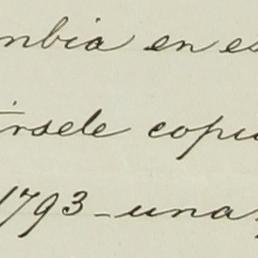 mbia en es
írsele copi
1793-una